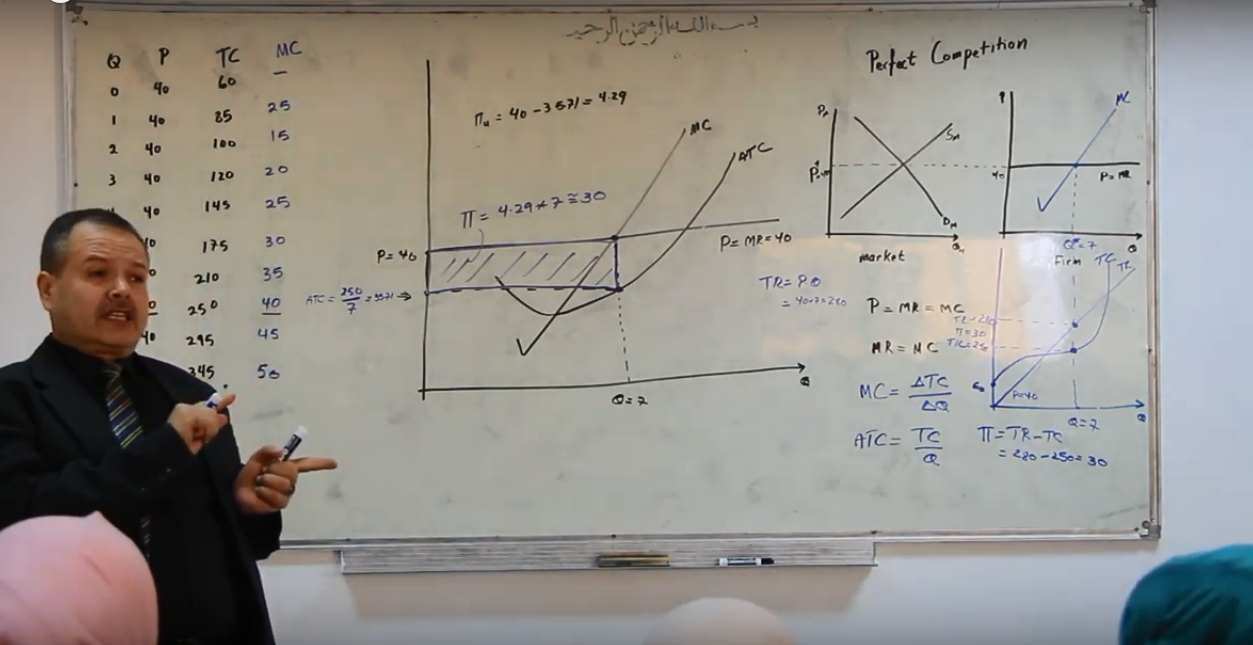 بسم الله الرحمن الرحيم
Q P TC MC
0 40 60 —
1 40 85 25
2 40 100 15
3 40 120 20
40 145 25
175 30
210 35
250 40
40 295 45
345 50
Πu = 40 - 35.71 = 4.29
MC
ATC
Π = 4.29 * 7 ≅ 30
P = 40
P = MR = 40
ATC = 250/7 = 35.71 →
Q = 7
Q
TR = PQ
= 40*7 = 280
Perfect Competition
SM
DM
market
P
MC
40
P = MR
Q* = 7
Q
Firm
P = MR = MC
MR = MC
MC = ΔTC/ΔQ
ATC = TC/Q
TC
TR
Π = 30
60
P=40
Q = 7
Q
Π = TR - TC
= 280 - 250 = 30